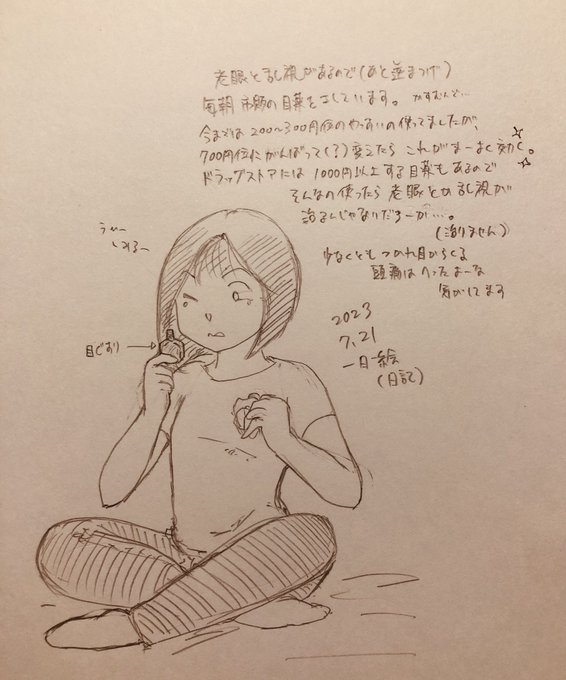 老眼と乱視があるので(あと逆まつげ)
毎朝 市販の目薬をさしています。かすむんで…
今までは200〜300円位のやっすいの使ってましたが、
700円位にがんばって(?)変えたら これがまーよく効く。
ドラッグストアには 1000円以上する目薬もあるので
そんなの使ったら 老眼とか乱視が
治るんじゃないだろーか…。
(治りません)
少なくとも つかれ目からくる
頭痛はへったよーな
気がしてます
うぃー
しみるー
目ぐすり→
2023
7.21
一日一絵
(日記)